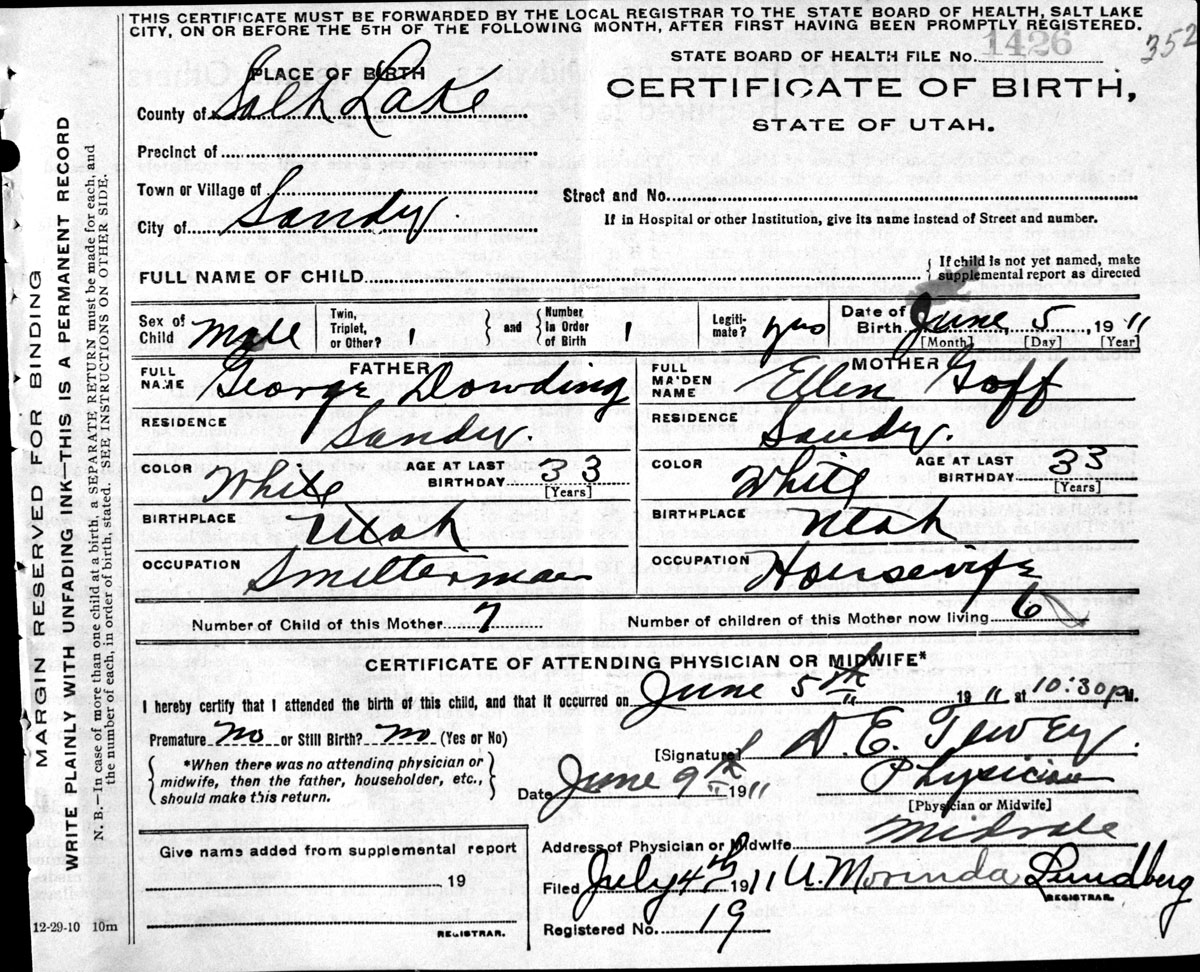 THIS CERTIFICATE MUST BE FORWARDED BY THE LOCAL REGISTRAR TO THE STATE BOARD OF HEALTH, SALT LAKE
CITY, ON OR BEFORE THE 5TH OF THE FOLLOWING MONTH, AFTER FIRST HAVING BEEN PROMPTLY REGISTERED.
352
STATE BOARD OF HEALTH FILE No. 1426
CERTIFICATE OF BIRTH,
STATE OF UTAH.
PLACE OF BIRTH
County of Salt Lake
Precinct of
Town or Village of
City of Sandy
Street and No.
If in Hospital or other Institution, give its name instead of Street and number.
FULL NAME OF CHILD
{ If child is not yet named, make
supplemental report as directed
Sex of Child Male
Twin, Triplet, or Other? 1 } and { Number In Order of Birth 1
Legitimate? yes
Date of Birth June 5, 1911
[Month] [Day] [Year]
FATHER
FULL NAME George Dowding
RESIDENCE Sandy.
COLOR White AGE AT LAST BIRTHDAY 33 [Years]
BIRTHPLACE Utah
OCCUPATION Smelterman
MOTHER
FULL MAIDEN NAME Ellen Goff
RESIDENCE Sandy.
COLOR White AGE AT LAST BIRTHDAY 33 [Years]
BIRTHPLACE Utah
OCCUPATION Housewife
Number of Child of this Mother 7 Number of children of this Mother now living 6
CERTIFICATE OF ATTENDING PHYSICIAN OR MIDWIFE*
I hereby certify that I attended the birth of this child, and that it occurred on June 5th 1911 at 10:30 p.M.
Premature No or Still Birth? No (Yes or No)
{ *When there was no attending physician or
midwife, then the father, householder, etc.,
should make this return. }
[Signature] D. E. Tewey.
Date June 9th 1911
Physician
[Physician or Midwife]
Address of Physician or Midwife Midvale
Give name added from supplemental report
19
REGISTRAR.
Filed July 4th 1911 U. Morinda Lundberg
REGISTRAR.
Registered No. 19
12-29-10 10m
MARGIN RESERVED FOR BINDING
WRITE PLAINLY WITH UNFADING INK—THIS IS A PERMANENT RECORD
N. B.—In case of more than one child at a birth, a SEPARATE RETURN must be made for each, and
the number of each, in order of birth, stated. SEE INSTRUCTIONS ON OTHER SIDE.